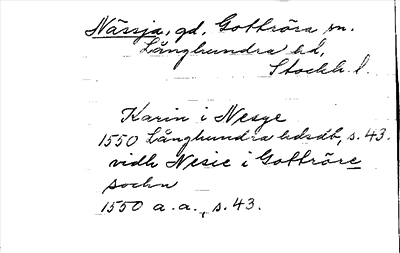 Nässja, gd, Gottröra sn.
Långhundra hd,
Stockh. l.
Karin i Nesge
1550 Långhundra hdsdb, s. 43.
vidh Nesie i Gottröre
sochn
1550 a.a., s. 43.